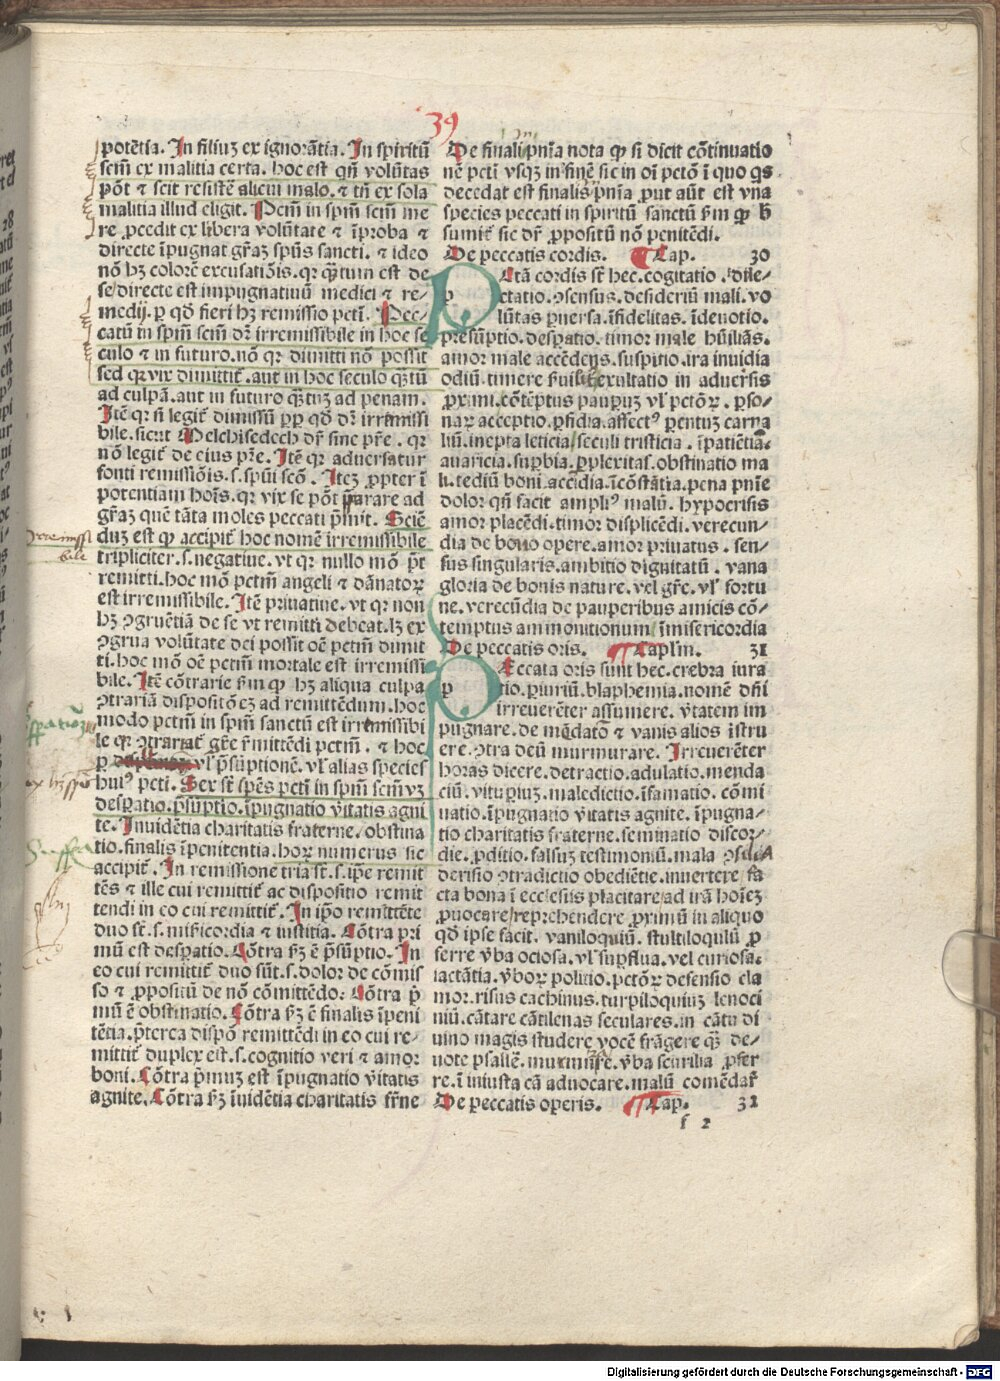 39
potētia. In filiuʒ ex ignorātia. In spiritū
scm̄ ex malitia certa. hoc est qn̄ volūtas
pōt ⁊ scit resistē alicui malo. ⁊ tn̄ ex sola
malitia illud eligit. Pctm̄ in spm̄ scm̄ me
re ꝓcedit ex libera volūtate ⁊ īproba ⁊
directe īpugnat gr̄aʒ spūs sancti. ⁊ ideo
nō hʒ colorē excusatiōis. qꝛ qm̄tum est de
se directe est impugnatiuū medici ⁊ re-
medij. ꝑ qd̄ fieri hʒ remissio pcti. Pec-
catū in spm̄ scm̄ dr̄ irremissibile in hoc se
culo ⁊ in futuro. nō qꝛ dimitti nō possit
sed qꝛ vix dimittit᷑. aut in hoc seculo qm̄tū
ad culpā. aut in futuro qm̄tuʒ ad penam.
Itē qꝛ nō legit᷑ dimissū ꝓp qd̄ dr̄ irremissi
bile. sicut Melchisedech dr̄ sine pr̄e. qꝛ
nō legit᷑ de eius pr̄e. Itē qꝛ aduersatur
fonti remissiōis. s. spūi scō. Iteʒ ꝓpter ī
potentiam hoīs. qꝛ vix se pōt p̄parare ad
gr̄aʒ quē tāta moles peccati p̄mit. Sciē
duʒ est ꝙ accipit᷑ hoc nomē irremissibile
tripliciter. s. negatiue. vt qꝛ nullo mō pōt
remitti. hoc mō pctm̄ angeli ⁊ dānatoꝝ
est irremissibile. Itē priuatiue. vt qꝛ non
hʒ ꝯgruētiā de se vt remitti debeat. lʒ ex
ꝯgrua volūtate dei possit oē pctm̄ dimit
ti. hoc mō oē pctm̄ mortale est irremissi
bile. Itē cōtrarie ẜm ꝙ hʒ aliqua culpa
ꝯtrariā dispositōeʒ ad remittēdum. hoc
modo pctm̄ in spm̄ sanctū est irremissibi
le qꝛ ꝯtrariat᷑ gr̄e remittēdi pctm̄. ⁊ hoc
ꝑ vl̓ p̄sūptionē. vl̓ alias species
huiꝰ pcti. Sex st̄ spēs pcti in spm̄ scm̄ vʒ
despatio. p̄sūptio. īpugnatio v̓itatis agni
te. Inuidētia charitatis fraterne. obstina
tio. finalis īpenitentia. hoꝝ numerus sic
accipit᷑. In remissione tria st̄. s. ip̄e remit
tēs ⁊ ille cui remittit᷑ ac dispositio remit
tendi in eo cui remittit᷑. In ip̄o remittēte
duo st̄. s. mis̓icordia ⁊ iustitia. Cōtra pri
mū est despatio. Cōtra ẜʒ ē p̄sūptio. In
eo cui remittit᷑ duo sūt. s. dolor de cōmis
so ⁊ ꝓpositū de nō cōmittēdo. Cōtra p̄
mū ē obstinatio. Cōtra ẜʒ ē finalis īpeni
tētia. p̄terea dispō remittēdi in eo cui re-
mittit᷑ duplex est. s. cognitio veri ⁊ amor
boni. Cōtra p̄muʒ est īpugnatio v̓itatis
agnite. Cōtra ẜʒ īuidētia charitatis fr̄ne
De finali īpnīa nota ꝙ si dicit cōtinuatio
nē pcti vsqʒ in finē sic in oī pctō ī quo qs
decedat est finalis īpnīa ꝓut aūt est vna
species peccati in spiritū sanctū ẜm ꝙ h̄
sumit᷑ sic dr̄ ꝓpositū nō penitēdi.
De peccatis cordis. Cap. 30
PCtā cordis st̄ hec. cogitatio. dile-
ctatio. ꝯsensus. desideriū mali. vo
lūtas ꝑuersa. īfidelitas. īdeuotio.
presūptio. despatio. timor male hūiliās.
amor male accēdens. suspitio. ira inuidia
odiū. timere ẜuilis. exultatio in aduersis
ꝓximi. cōtēptus paupuʒ vl̓ pctōꝝ. ꝑso-
naꝝ acceptio. ꝑfidia. affectꝰ parentuʒ carna
liū. inepta leticia. seculi tristicia. īpatiētia.
auaricia. suꝑbia. ꝑplexitas. obstinatio ma
li. tediū boni. accidia. īcōstātia. pena pnīe
dolor qn̄ facit ampliꝰ malū. hypocrisis
amor placēdi. timor displicēdi. verecun-
dia de bono opere. amor priuatus. sen-
sus singularis. ambitio dignitatū. vana
gloria de bonis nature. vel gr̄e. vl̓ fortu
ne. verecūdia de pauperibus amicis cō-
temptus ammonitionum. īmisericordia
De peccatis oris. Caplm̄. 31
PEccata oris sunt hec. crebra iura
tio. ꝑiuriū. blaphemia. nomē dn̄i
irreuerēter assumere. v̓itatem im
pugnare. de mēdatō ⁊ vanis alios īstru
ere. ꝯtra deū murmurare. Irreuerēter
horas dicere. detractio. adulatio. menda
ciū. vitupiuʒ. maledictio. īfamatio. cōmi
natio. īpugnatio v̓itatis agnite. īpugna-
tio charitatis fraterne. seminatio discor-
die. ꝓditio. falsuʒ testimoniū. mala ꝯsilia
derisio ꝯtradictio obediētie. inuertere fa
cta bona ī ecclesiis placitare. ad irā hoīeʒ
ꝓuocare. reprehendere ꝓximū in aliquo
qd̄ ipse facit. vaniloquiū. stultiloquiū ꝓ
ferre v̓ba ociosa. vl̓ suꝑflua. vel curiosa.
iactātia. v̓boꝝ politio. pctōꝝ defensio cla
mor. risus cachinus. turpiloquiuʒ lenoci
niū. cātare cātilenas seculares. in cātu di
uino magis studere vocē frāgere qm̄ de-
uote psallē. murmur̄e. v̓ba scurilia ꝓfer
re. ī iniusta cā aduocare. malū comēdar̄
De peccatis operis. Cap. 32
f 2
Digitalisierung gefördert durch die Deutsche Forschungsgemeinschaft - DFG